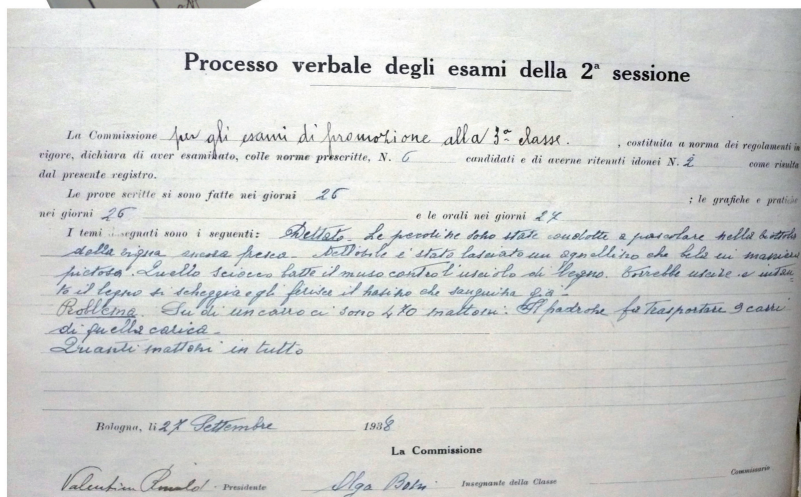 Processo verbale degli esami della 2ª sessione
La Commissione per gli esami di promozione alla 3ª classe. , costituita a norma dei regolamenti in
vigore, dichiara di aver esaminato, colle norme prescritte, N. 6 candidati e di averne ritenuti idonei N. 2 come risulta
dal presente registro.
Le prove scritte si sono fatte nei giorni 26 ; le grafiche e pratiche
nei giorni 26 e le orali nei giorni 27
I temi assegnati sono i seguenti: Dettato. Le pecorine sono state condotte a pascolare nella
della vigna ancora fresca. Nell'ovile è stato lasciato un agnellino che bela in maniera
pietosa. Quello sciocco batte il muso contro l'usciolo di legno. Vorrebbe uscire e intan
to il legno si scheggia e gli ferisce il nasino che sanguina già.
Problema. Su di un carro ci sono 470 mattoni. Il padrone fa trasportare 9 carri
di quella carica.
Quanti mattoni in tutto
Bologna, li 27 Settembre 1938
La Commissione
Presidente Olga Insegnante della Classe Commissario